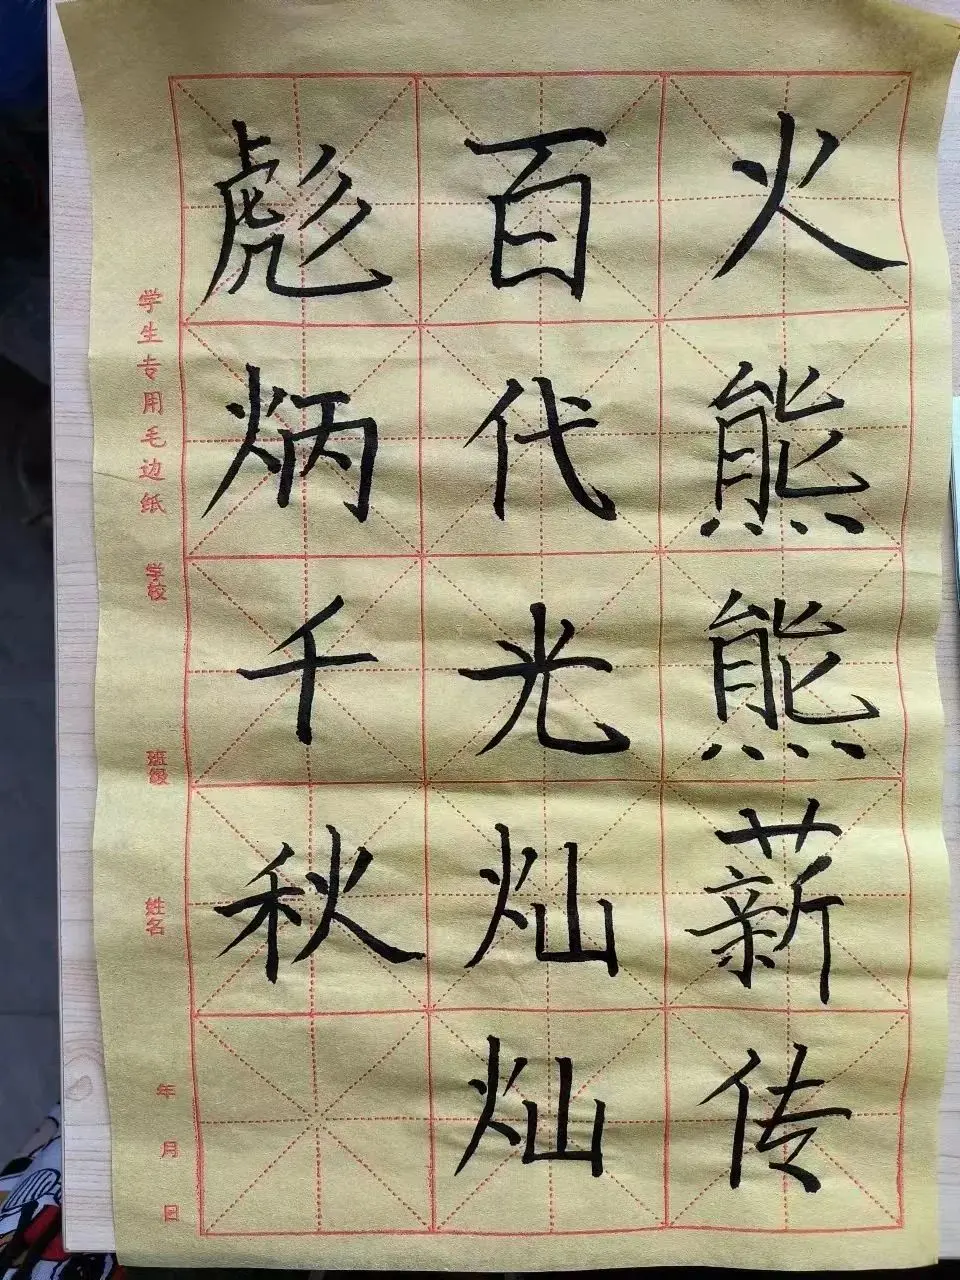 火熊熊薪传
百代光灿灿
彪炳千秋
学生专用毛边纸
学校
班级
姓名
年 月 日